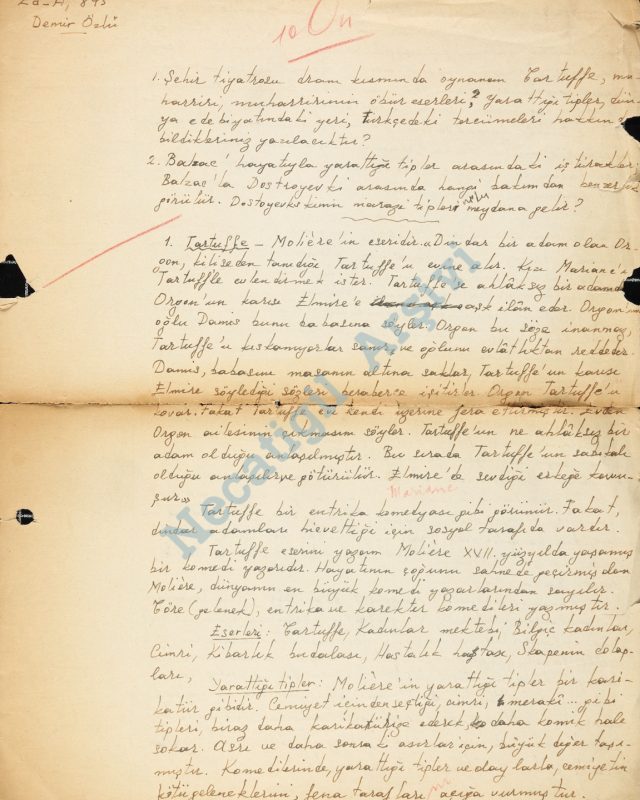 Ed-A, 893
Demir Özlü
10 On
1. Şehir tiyatrosu dram kısmında oynanan Tartuffe, mu
harriri, muharririnin öbür eserleri, ? yarattığı tipler, dün
ya edebiyatındaki yeri, türkçedeki tercümeleri hakkın
bildikleriniz yazılacaktır?
2. Balzac' hayatıyla yarattığı tipler arasındaki iştirakler
Balzac'la Dostoyevki arasında hangi bakımdan
görülür. Dostoyevskinin marazi tipleri meydana gelir?
1. Tartuffe – Molière'in eseridir. "Dindar bir adam olan Or
gon, kiliseden tanıdığı Tartuffe'u evine alır. Kızı Mariane'ı
Tartuffle evlendirmek ister. Tartuffe ise ahlâksız bir adamdır
Orgon'un karısı Elmire'e aşk ilân eder. Orgon'un
oğlu Damis bunu babasına söyler. Orgon bu söze inanmaz,
Tartuffe'u kıskanıyorlar sanır, ve oğlunu evlâtlıktan reddeder.
Damis, babasını masanın altına saklar, Tartuffe'un karısı
Elmire söylediği sözleri beraberce işitirler. Orgon Tartuffe'u
kovar. Fakat Tartuffe evi kendi üzerine fera ettirmiştir. Evden
Orgon ailesinin çıkmasını söyler. Tartuffe'un ne ahlâksız bir
adam olduğu anlaşılmıştır. Bu sırada Tartuffe'un sabıkalı
olduğu anlaşılır ve götürülür. Elmire'de sevdiği erkeğe kavu-
şur"
Mariane
Tartuffe bir entrika komedyası gibi görünür. Fakat,
dindar adamları hicvettiği için sosyal tarafıda vardır.
Tartuffe eserini yazan Molière XVII. yüzyılda yaşamış
bir komedi yazarıdır. Hayatının çoğunu sahnede geçirmiş olan
Molière, dünyanın en büyük komedi yazarlarından sayılır.
Töre (gelenek), entrika ve karekter komedileri yazmıştır.
Eserleri: Tartuffe, Kadınlar mektebi, Bilgiç kadınlar,
Cimri, Kibarlık budalası, Hastalık hastası, Skapenin dolap-
ları,
Yarattığı tipler: Molière'in yarattığı tipler bir kari-
katür gibidir. Cemiyet içinden seçtiği, cimri, meraki... gibi
tipleri, biraz daha karikatürize ederek, daha komik hale
sokar. Asrı ve daha sonraki asırlar için, büyük değer taşı-
mıştır. Komedilerinde, yarattığı tipler ve olaylarla, cemiyetin
kötü geleneklerini, fena tarafları nı açığa vurmuştur.
Necatigil Arşivi